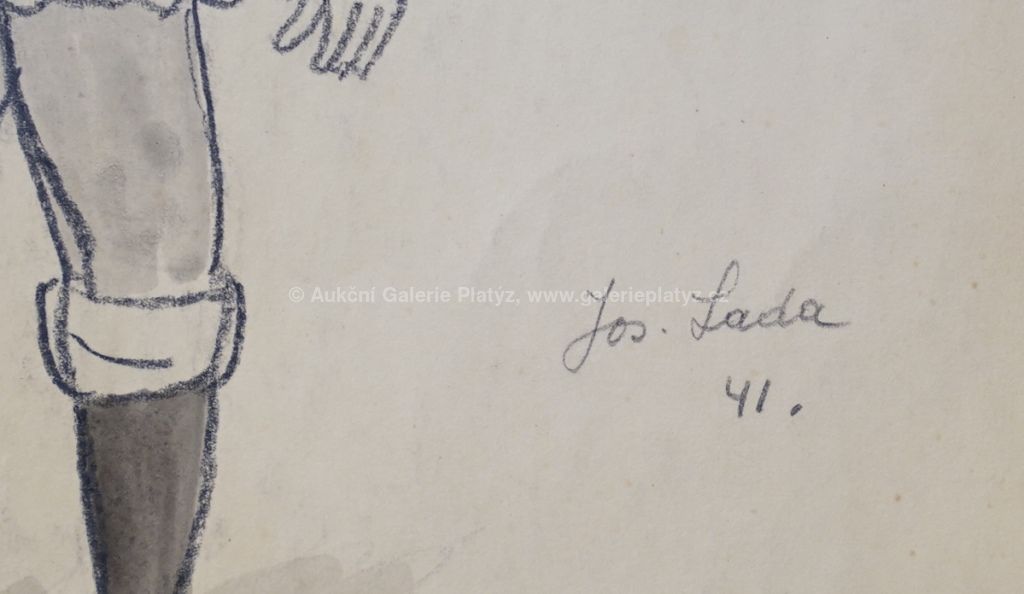 © Aukční Galerie Platýz, www.galerieplatyz.cz
Jos. Lada
41.